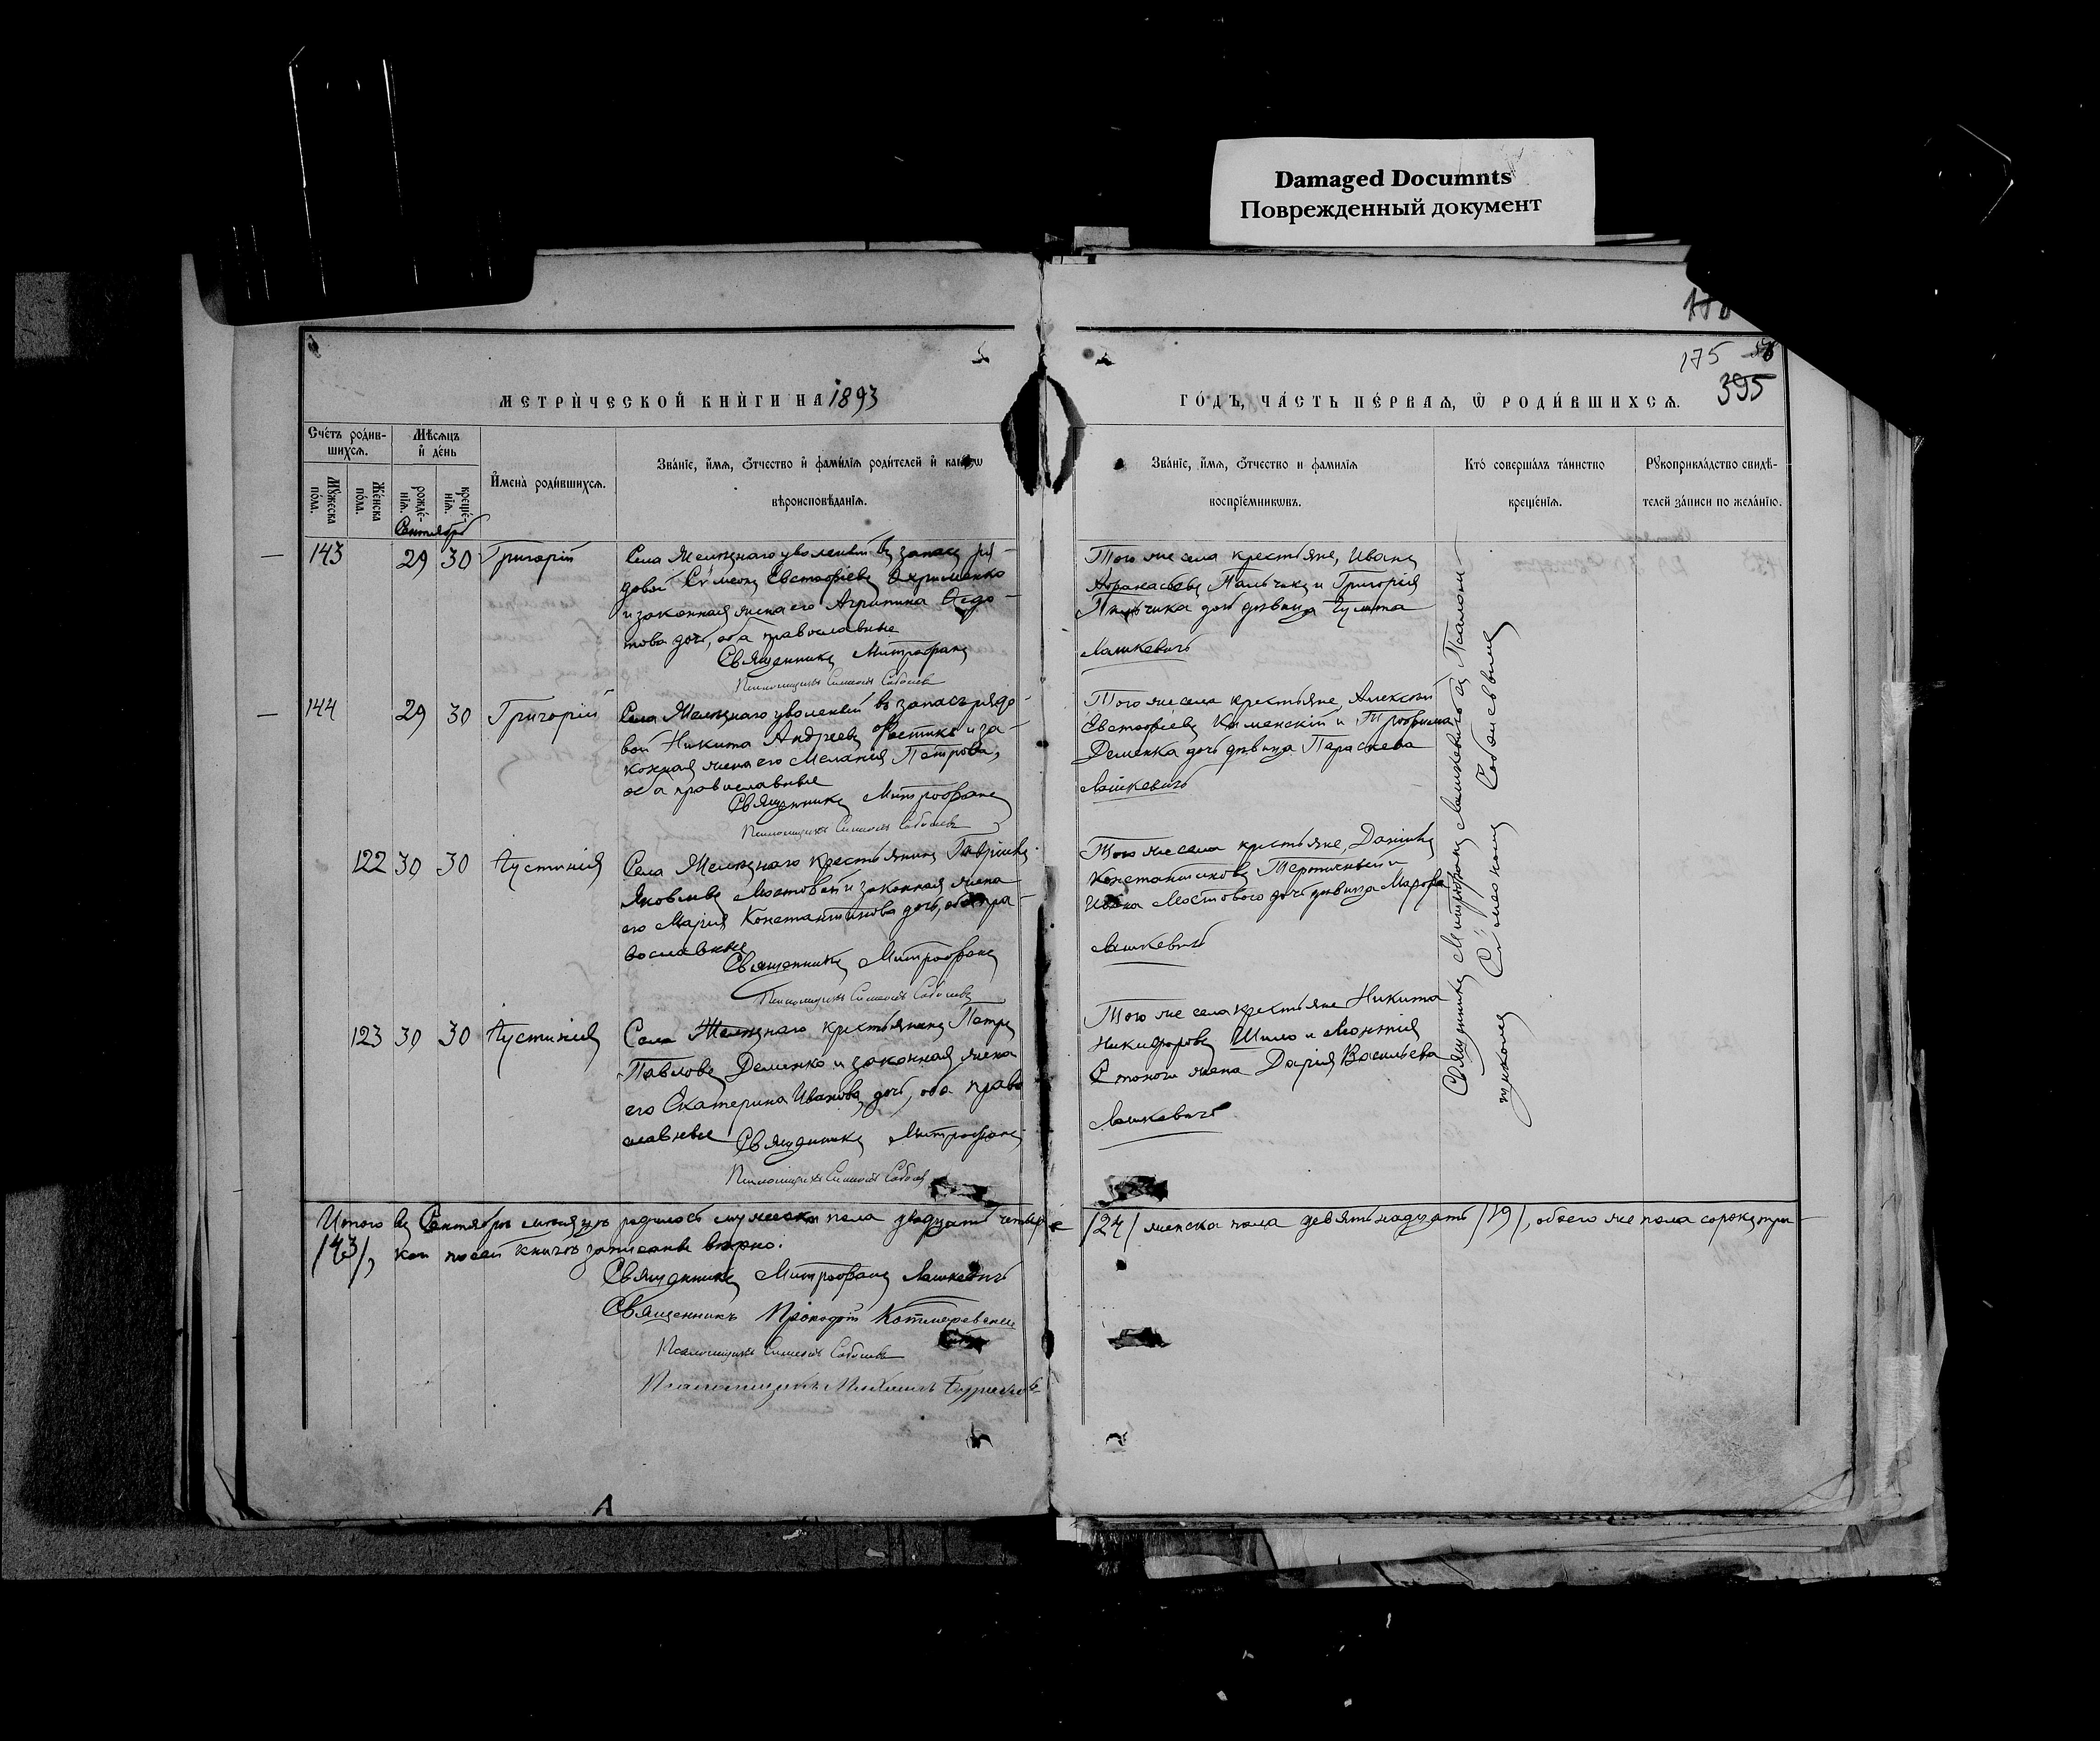 Damaged Documnts
Поврежденный документ
175
395
МЕТРИ́ЧЕСКОЙ КНИ́ГИ НА 1893
ГО́ДЪ, ЧА́СТЬ ПЕ́РВАЯ, Ѡ҆ РОДИ́ВШИХСЯ.
Сче́тъ роди́в-
шихся.
Мѣ́сяцъ
и҆ де́нь
Му́жеска
по́ла.
Же́нска
по́ла.
рожде́-
нїя.
креще́-
нїя.
И҆мена̀ роди́вшихся.
Зва́нїе, и҆́мя, ѻ҆́тчество и҆ фами́лїя роди́телей и҆
вѣроисповѣ́данїя.
Зва́нїе, и҆́мя, ѻ҆́тчество и фами́лїя
воспрїе́мникѡвъ.
Кто̀ соверша́лъ та́инство
креще́нїя.
Рꙋкоприкла́дство свидѣ́-
телей за́писи по жела́нїю.
Сентябрь
143 29 30 Григорій
Села уволенный въ запасъ ря-
довой Сѵмеонъ Евстафіевъ Охрименко
и законная жена его Агрипина Ѳедо-
това дочь, оба православные
Священникъ Митрофанъ
Псаломщикъ Симеонъ
Того же села крестьяне, Иванъ
и Григорія
дочь дѣвица
Лашкевичъ
144 29 30 Григорій
Села уволенный въ запасъ рядо-
вой Никита Андреевъ и за-
конная жена его Меланія Петрова,
оба православные
Священникъ Митрофанъ
Псаломщикъ Симеонъ
Того же села крестьяне, Алексѣй
Евстафіевъ Каменскій и Трофима
Деменка дочь дѣвица Параскева
Лашкевичъ
122 30 30 Іустинія
Села крестьянинъ Гавріилъ
Яковлевъ Мостовой и законная жена
его Марія Константинова дочь, оба пра-
вославные
Священникъ Митрофанъ
Псаломщикъ Симеонъ
Того же села крестьяне, Даніилъ
Константиновъ и
Ивана Мостового дочь дѣвица Марѳа
Лашкевичъ
123 30 30 Іустинія
Села крестьянинъ Петръ
Павловъ Деменко и законная жена
его Екатерина Иванова дочь, оба право
славные
Священникъ Митрофанъ
Псаломщикъ Симеонъ
Того же села крестьяне Никита
Никифоровъ Шило и
жена Дарія Васильева
Лашкевичъ
Священникъ Митрофанъ Лашкевичъ съ Псалом-
щикомъ Сѵмеономъ
Итого въ Сентябрѣ мѣсяцѣ родилось мужеска пола двадцать четыре /24/ женска пола девятнадцать /19/, обоего же пола сорокъ три
/43/, кои по сей книгѣ записаны вѣрно.
Священникъ Митрофанъ Лашкевичъ
Священникъ Прокофій
Псаломщикъ Симеонъ
Псаломщикъ